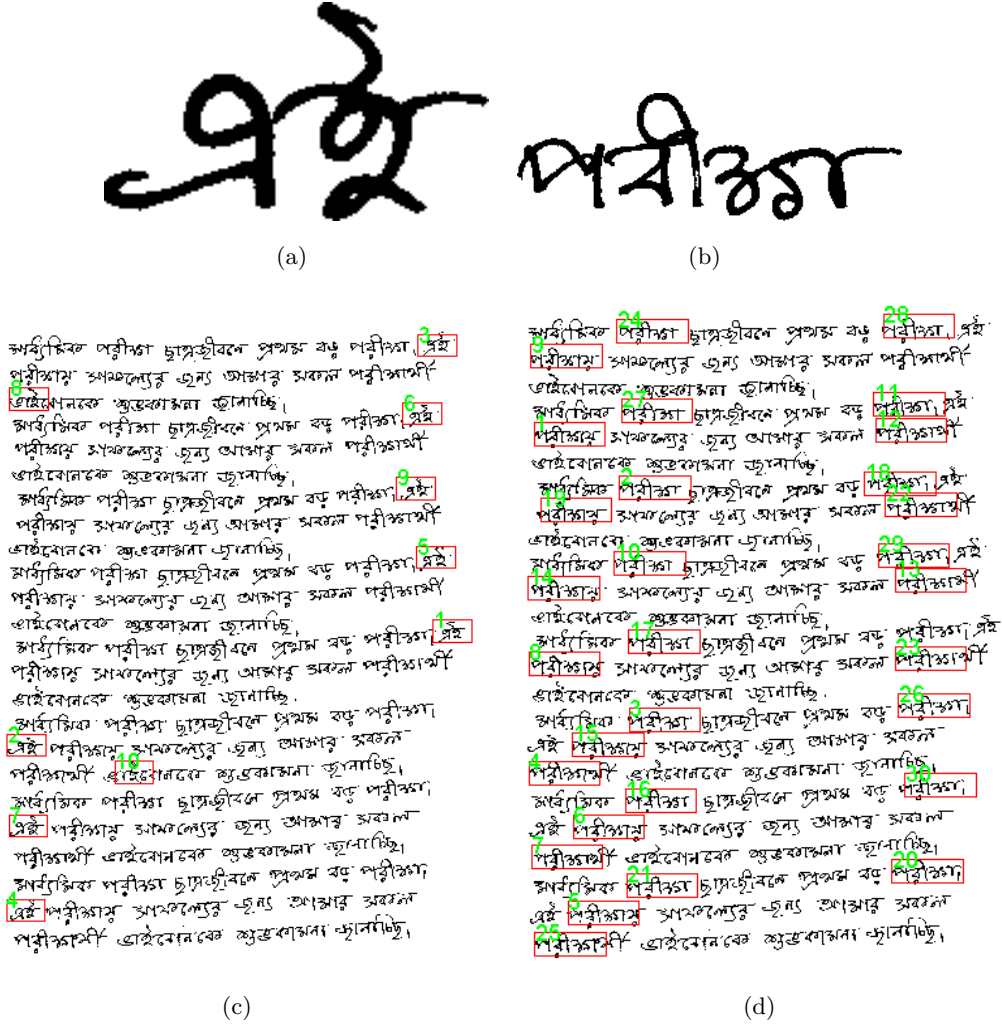 এই
পরীক্ষা
(a)
(b)
মাধ্যমিক পরীক্ষা ছাত্রজীবনে প্রথম বড় পরীক্ষা, 3 এই
পরীক্ষায় সাফল্যের জন্য আমার সকল পরীক্ষার্থী
8 ভাইবোনকে শুভকামনা জানাচ্ছি।
মাধ্যমিক পরীক্ষা ছাত্রজীবনে প্রথম বড় পরীক্ষা, 6 এই
পরীক্ষায় সাফল্যের জন্য আমার সকল পরীক্ষার্থী
ভাইবোনকে শুভকামনা জানাচ্ছি।
মাধ্যমিক পরীক্ষা ছাত্রজীবনে প্রথম বড় পরীক্ষা, 9 এই
পরীক্ষায় সাফল্যের জন্য আমার সকল পরীক্ষার্থী
ভাইবোনকে শুভকামনা জানাচ্ছি।
মাধ্যমিক পরীক্ষা ছাত্রজীবনে প্রথম বড় পরীক্ষা, 5 এই
পরীক্ষায় সাফল্যের জন্য আমার সকল পরীক্ষার্থী
ভাইবোনকে শুভকামনা জানাচ্ছি।
মাধ্যমিক পরীক্ষা ছাত্রজীবনে প্রথম বড় পরীক্ষা, 1 এই
পরীক্ষায় সাফল্যের জন্য আমার সকল পরীক্ষার্থী
ভাইবোনকে শুভকামনা জানাচ্ছি।
মাধ্যমিক পরীক্ষা ছাত্রজীবনে প্রথম বড় পরীক্ষা,
2 এই পরীক্ষায় সাফল্যের জন্য আমার সকল
পরীক্ষার্থী 10 ভাইবোনকে শুভকামনা জানাচ্ছি।
মাধ্যমিক পরীক্ষা ছাত্রজীবনে প্রথম বড় পরীক্ষা,
7 এই পরীক্ষায় সাফল্যের জন্য আমার সকল
পরীক্ষার্থী ভাইবোনকে শুভকামনা জানাচ্ছি।
মাধ্যমিক পরীক্ষা ছাত্রজীবনে প্রথম বড় পরীক্ষা,
4 এই পরীক্ষায় সাফল্যের জন্য আমার সকল
পরীক্ষার্থী ভাইবোনকে শুভকামনা জানাচ্ছি।
(c)
মাধ্যমিক 24 পরীক্ষা ছাত্রজীবনে প্রথম বড় 28 পরীক্ষা, এই
9 পরীক্ষায় সাফল্যের জন্য আমার সকল পরীক্ষার্থী
ভাইবোনকে শুভকামনা জানাচ্ছি।
মাধ্যমিক 27 পরীক্ষা ছাত্রজীবনে প্রথম বড় 11 পরীক্ষা, এই
1 পরীক্ষায় সাফল্যের জন্য আমার সকল 12 পরীক্ষার্থী
ভাইবোনকে শুভকামনা জানাচ্ছি।
মাধ্যমিক 2 পরীক্ষা ছাত্রজীবনে প্রথম বড় 18 পরীক্ষা, এই
19 পরীক্ষায় সাফল্যের জন্য আমার সকল 22 পরীক্ষার্থী
ভাইবোনকে শুভকামনা জানাচ্ছি।
মাধ্যমিক 10 পরীক্ষা ছাত্রজীবনে প্রথম বড় 29 পরীক্ষা, এই
14 পরীক্ষায় সাফল্যের জন্য আমার সকল 13 পরীক্ষার্থী
ভাইবোনকে শুভকামনা জানাচ্ছি।
মাধ্যমিক 17 পরীক্ষা ছাত্রজীবনে প্রথম বড় পরীক্ষা, এই
8 পরীক্ষায় সাফল্যের জন্য আমার সকল 23 পরীক্ষার্থী
ভাইবোনকে শুভকামনা জানাচ্ছি।
মাধ্যমিক 3 পরীক্ষা ছাত্রজীবনে প্রথম বড় 26 পরীক্ষা,
এই 15 পরীক্ষায় সাফল্যের জন্য আমার সকল
4 পরীক্ষার্থী ভাইবোনকে শুভকামনা জানাচ্ছি।
মাধ্যমিক 16 পরীক্ষা ছাত্রজীবনে প্রথম বড় 30 পরীক্ষা,
এই 6 পরীক্ষায় সাফল্যের জন্য আমার সকল
7 পরীক্ষার্থী ভাইবোনকে শুভকামনা জানাচ্ছি।
মাধ্যমিক 21 পরীক্ষা ছাত্রজীবনে প্রথম বড় 20 পরীক্ষা,
এই 5 পরীক্ষায় সাফল্যের জন্য আমার সকল
25 পরীক্ষার্থী ভাইবোনকে শুভকামনা জানাচ্ছি।
(d)